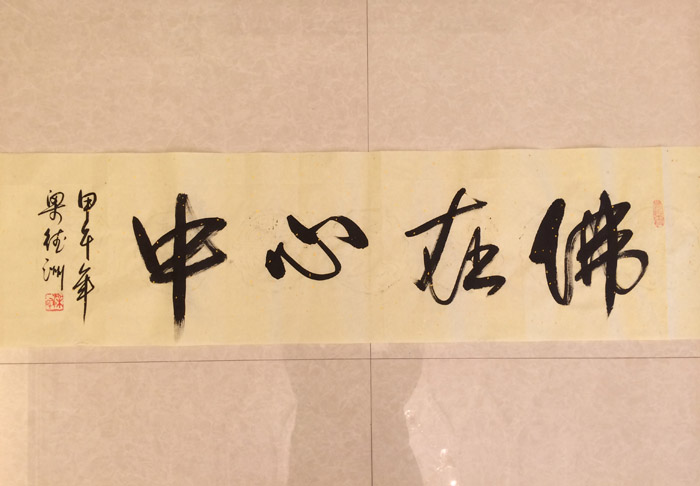 佛在心中
甲午年
梁德洲